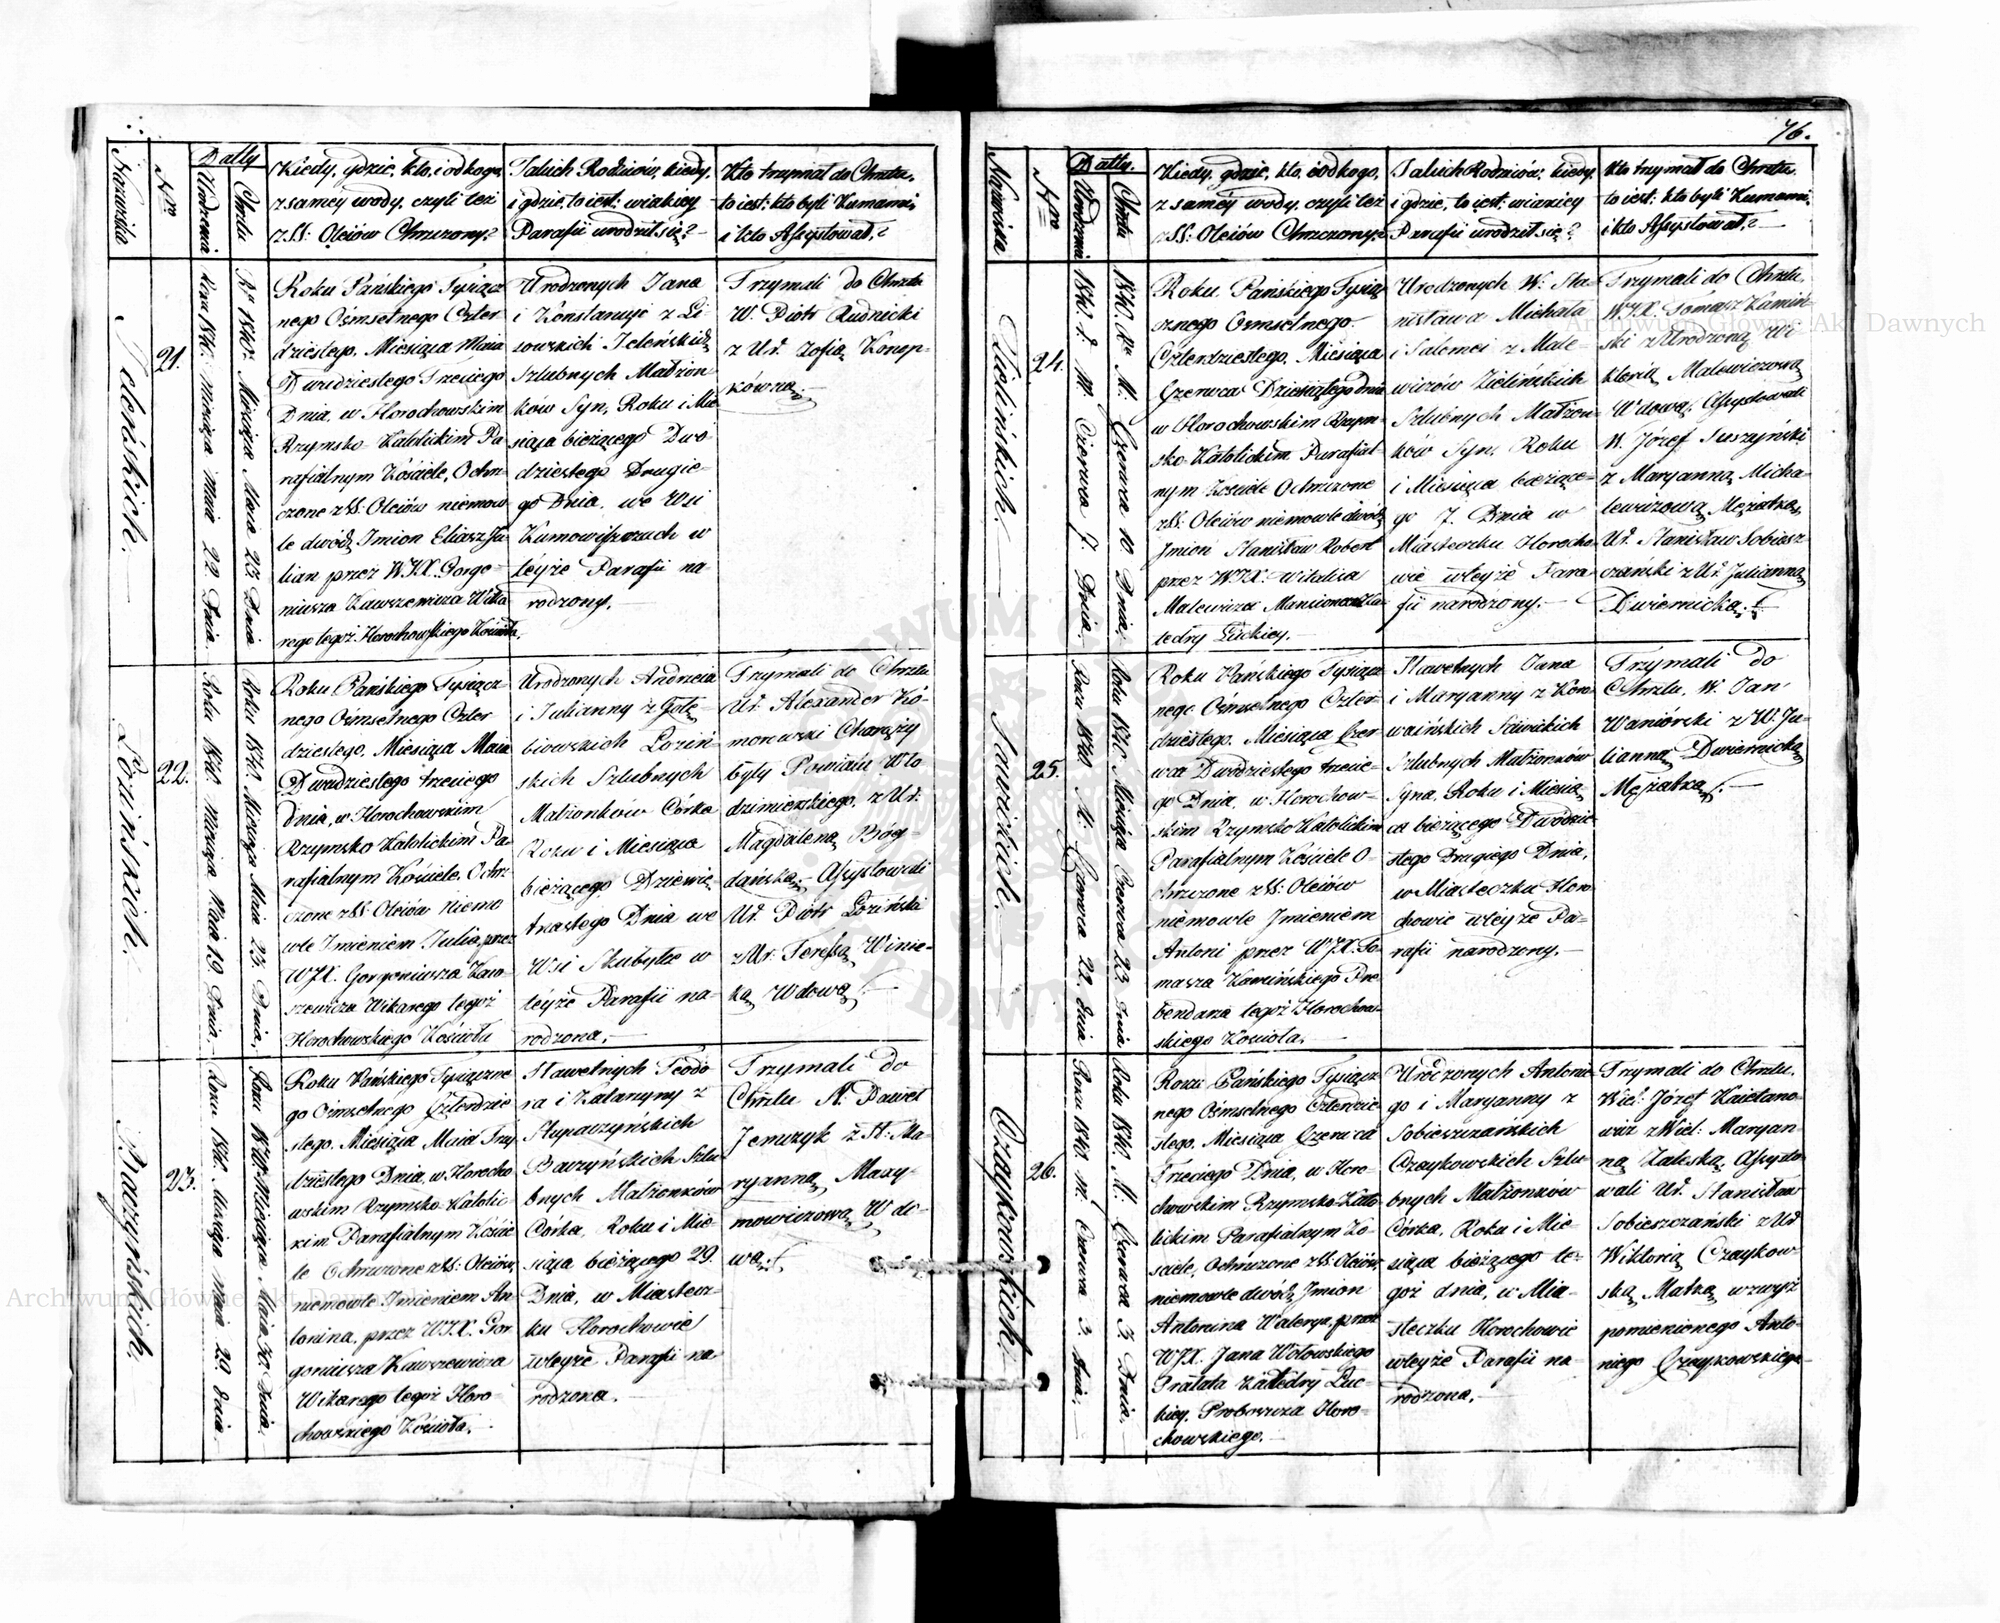 76.
Nazwiska
Nro
Datty
Urodzenia
Chrztu
Kiedy, gdzie, kto, i od kogo,
z samey wody, czyli też
z SS: Oleiów Chrzczony?
Jakich Rodziców, kiedy,
i gdzie, to iest: w iakiey
Parafii urodził się?
Kto trzymał do Chrztu,
to iest: kto byli Kumami,
i kto Assystował?
Jeleńskich.
21.
Roku 1840. Miesiąca Maia 22. Dnia.
Ru 1840. Miesiąca Maia 23. Dnia
Roku Pańskiego Tysiącz
nego Ośmsetnego Czter
dziestego, Miesiąca Maia
Dwudziestego Trzeciego
Dnia, w Horochowskim
Rzymsko-Katolickim Pa
rafialnym Kościele, Ochrz
czone z SS: Oleiów niemow
le dwóch Imion Eliasz Ju
lian przez WJX. Gorgo-
niusza Kawszewicza Wika
rego tegoż Horochowskiego Kościoła.
Urodzonych Jana
i Konstancyi z Li-
sowskich Jeleńskich
Szlubnych Małżon
ków Syn, Roku i Mie
siąca bieżącego Dwó
dziestego Drugie-
go Dnia, we Wsi
w
teyże Parafii na-
rodzony.
Trzymali do Chrztu
W. Piotr Rudnicki
z Ur. Zofią Konop-
kówną.
Łozińskich.
22.
Roku 1840. Miesiąca Maia 19. Dnia.
Roku 1840. Miesiąca Maia 23. Dnia.
Roku Pańskiego Tysiącz
nego Ośmsetnego Czter
dziestego, Miesiąca Maia
Dwudziestego trzeciego
dnia, w Horochowskim
Rzymsko Katolickim Pa-
rafialnym Kościele, Ochrz
czone z SS: Oleiów Niemo
wle Imieniem Julia, przez
WJX. Gorgoniusza Kaw-
szewicza Wikarego tegoż
Horochowskiego Kościoła
Urodzonych Andrzeia
i Julianny z Gołę-
biowskich Łoziń-
skich Szlubnych
Małżonków Córka
Roku i Miesiąca
bieżącego Dziewię
tnastego Dnia we
Wsi Skubyłce w
teyże Parafii na-
rodzona.
Trzymali do Chrztu
Ur. Alexander Ko-
morowski Chorąży
były Powiatu Wło
dzimierskiego, z Ur:
Magdaleną Bóg-
dańską. Assystowali
Ur. Piotr Łoziński
z Ur: Teressą Winie-
ką Wdową.
Baczyńskich.
23.
Roku 1840. Miesiąca Maia 29. Dnia.
Roku 1840. Miesiąca Maia 30. Dnia.
Roku Pańskiego Tysiączne
go Ośmsetnego Czterdzie
stego, Miesiąca Maia Trzy
dziestego Dnia, w Horocho
wskim Rzymsko-Katolic
kim Parafialnym Koście
le Ochrzczone z SS: Oleiów,
niemowle Imieniem An
tonina, przez WJX. Gor
goniusza Kawszewicza
Wikarego tegoż Horo-
chowskiego Kościoła.
Sławetnych Teodo
ra i Katarzyny z
Słupaczyńskich
Baczyńskich Szlu
bnych Małżonków
Córka, Roku i Mie
siąca bieżącego 29.
Dnia, w Miastecz-
ku Horochowie
w teyże Parafii na
rodzona.
Trzymali do
Chrztu S. Paweł
Jemczyk z St: Ma-
ryanną Maxy-
mowiczową Wdo-
wą.
Nazwiska
Nro
Datty.
Urodzenia
Chrztu
Kiedy, gdzie, kto, i od kogo,
z samey wody, czyli też
z SS: Oleiów Chrzczony?
Jakich Rodziców, kiedy,
i gdzie, to iest: w iakiey
Parafii urodził się?
Kto trzymał do Chrztu,
to iest: kto byli Kumami,
i kto Assystował?
Zielińskich.
24.
1840. R. M. Czerwca 7. Dnia.
1840. Ru M. Czerwca 10 Dnia.
Roku Pańskiego Tysią-
cznego Ośmsetnego
Czterdziestego, Miesiąca
Czerwca Dziesiątego dnia
w Horochowskim Rzym-
sko-Katolickim Parafial-
nym Kościele Ochrzczone
z SS: Oleiów niemowle dwóch
Imion Stanisław Robert
przez WJX. Witalisa
Malewicza Mansionarza Ka-
tedry Łuckiey.
Urodzonych W. Sta-
nisława Michała
i Salomei z Male-
wiczów Zielińskich
Szlubnych Małżon-
ków Syn, Roku
i Miesiąca bieżące-
go 7. Dnia w
Miasteczku Horocho
wie w teyże Para
fii narodzony.
Trzymali do Chrztu,
WJX. Tomasz Kamiń-
ski z Urodzoną Wi
ktorią Malewiczową
Wdową; Assystowali
W. Józef Suszyński
z Maryanną Micha-
lewiczową Mężatką,
Ur. Stanisław Sobiesz-
czanski z Ur. Julianną
Dwiernicką.
Sawickich.
25.
Roku 1840 M. Czerwca 22. dnia
Roku 1840. Miesiąca Czerwca 23 Dnia
Roku Pańskiego Tysiącz
nego Ośmsetnego Czter-
dziestego, Miesiąca Czer
wca Dwudziestego trzecie-
go Dnia, w Horochow-
skim Rzymsko Katolickim
Parafialnym Kościele O-
chrzczone z SS: Oleiów
niemowle Imieniem
Antoni przez WJX. To-
masza Kamińskiego Pre-
bendarza tegoż Horochow-
skiego Kościoła.
Sławetnych Jana
i Maryanny z Kor
waińskich Sawickich
Szlubnych Małżonków
Syna, Roku i Miesią-
ca bieżącego Dwódzie-
stego Drugiego Dnia,
w Miasteczku Horo
chowie w teyże Pa-
rafii narodzony.
Trzymali do
Chrztu, W. Jan
Waniorski z W. Ju-
lianną Dwiernicką
Mężatką.
Czaykowskich.
26.
Roku 1840. M. Czerwca 3. dnia.
Roku 1840. M. Czerwca 3. Dnia.
Roku Pańskiego Tysiącz
nego Ośmsetnego Czterdzie
stego, Miesiąca Czerwca
Trzeciego Dnia, w Horo-
chowskim Rzymsko-Kato
lickim Parafialnym Ko-
ściele, Ochrzczone z SS: Oleiów,
niemowle dwóch Imion
Antonina Walerya, przez
WJX. Jana Wołowskiego
Prałata Katedry Łuc-
kiey, Proboszcza Horo-
chowskiego.
Urodzonych Antonie
go i Maryanny z
Sobieszczańskich
Czaykowskich Szlu
bnych Małżonków
Córka, Roku i Mie
siąca bieżącego te-
goż dnia, w Mia-
steczku Horochowie
w teyże Parafii na-
rodzona.
Trzymali do Chrztu,
Wiel. Józef Kaietano-
wicz z Wiel: Maryan-
ną Zaleską, Assysto-
wali Ur. Stanisław
Sobieszczański z Ur
Wiktorią Czaykow-
ską Matką wzwyż
pomienionego Anto-
niego Czaykowskiego.
Archiwum Główne Akt Dawnych
Archiwum Główne Akt Dawnych